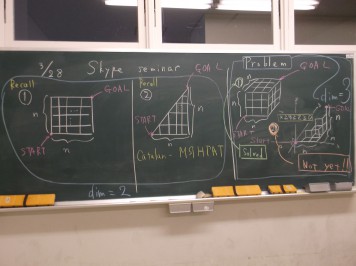 3/28 Skype seminar
Recall
①
GOAL
n
START
n
Recall
②
GOAL
n
START
n
Catalan-
dim=2
Problem
①
GOAL
n
START
n
Solved
dim=3
②
GOAL
n
START
Not yet!!